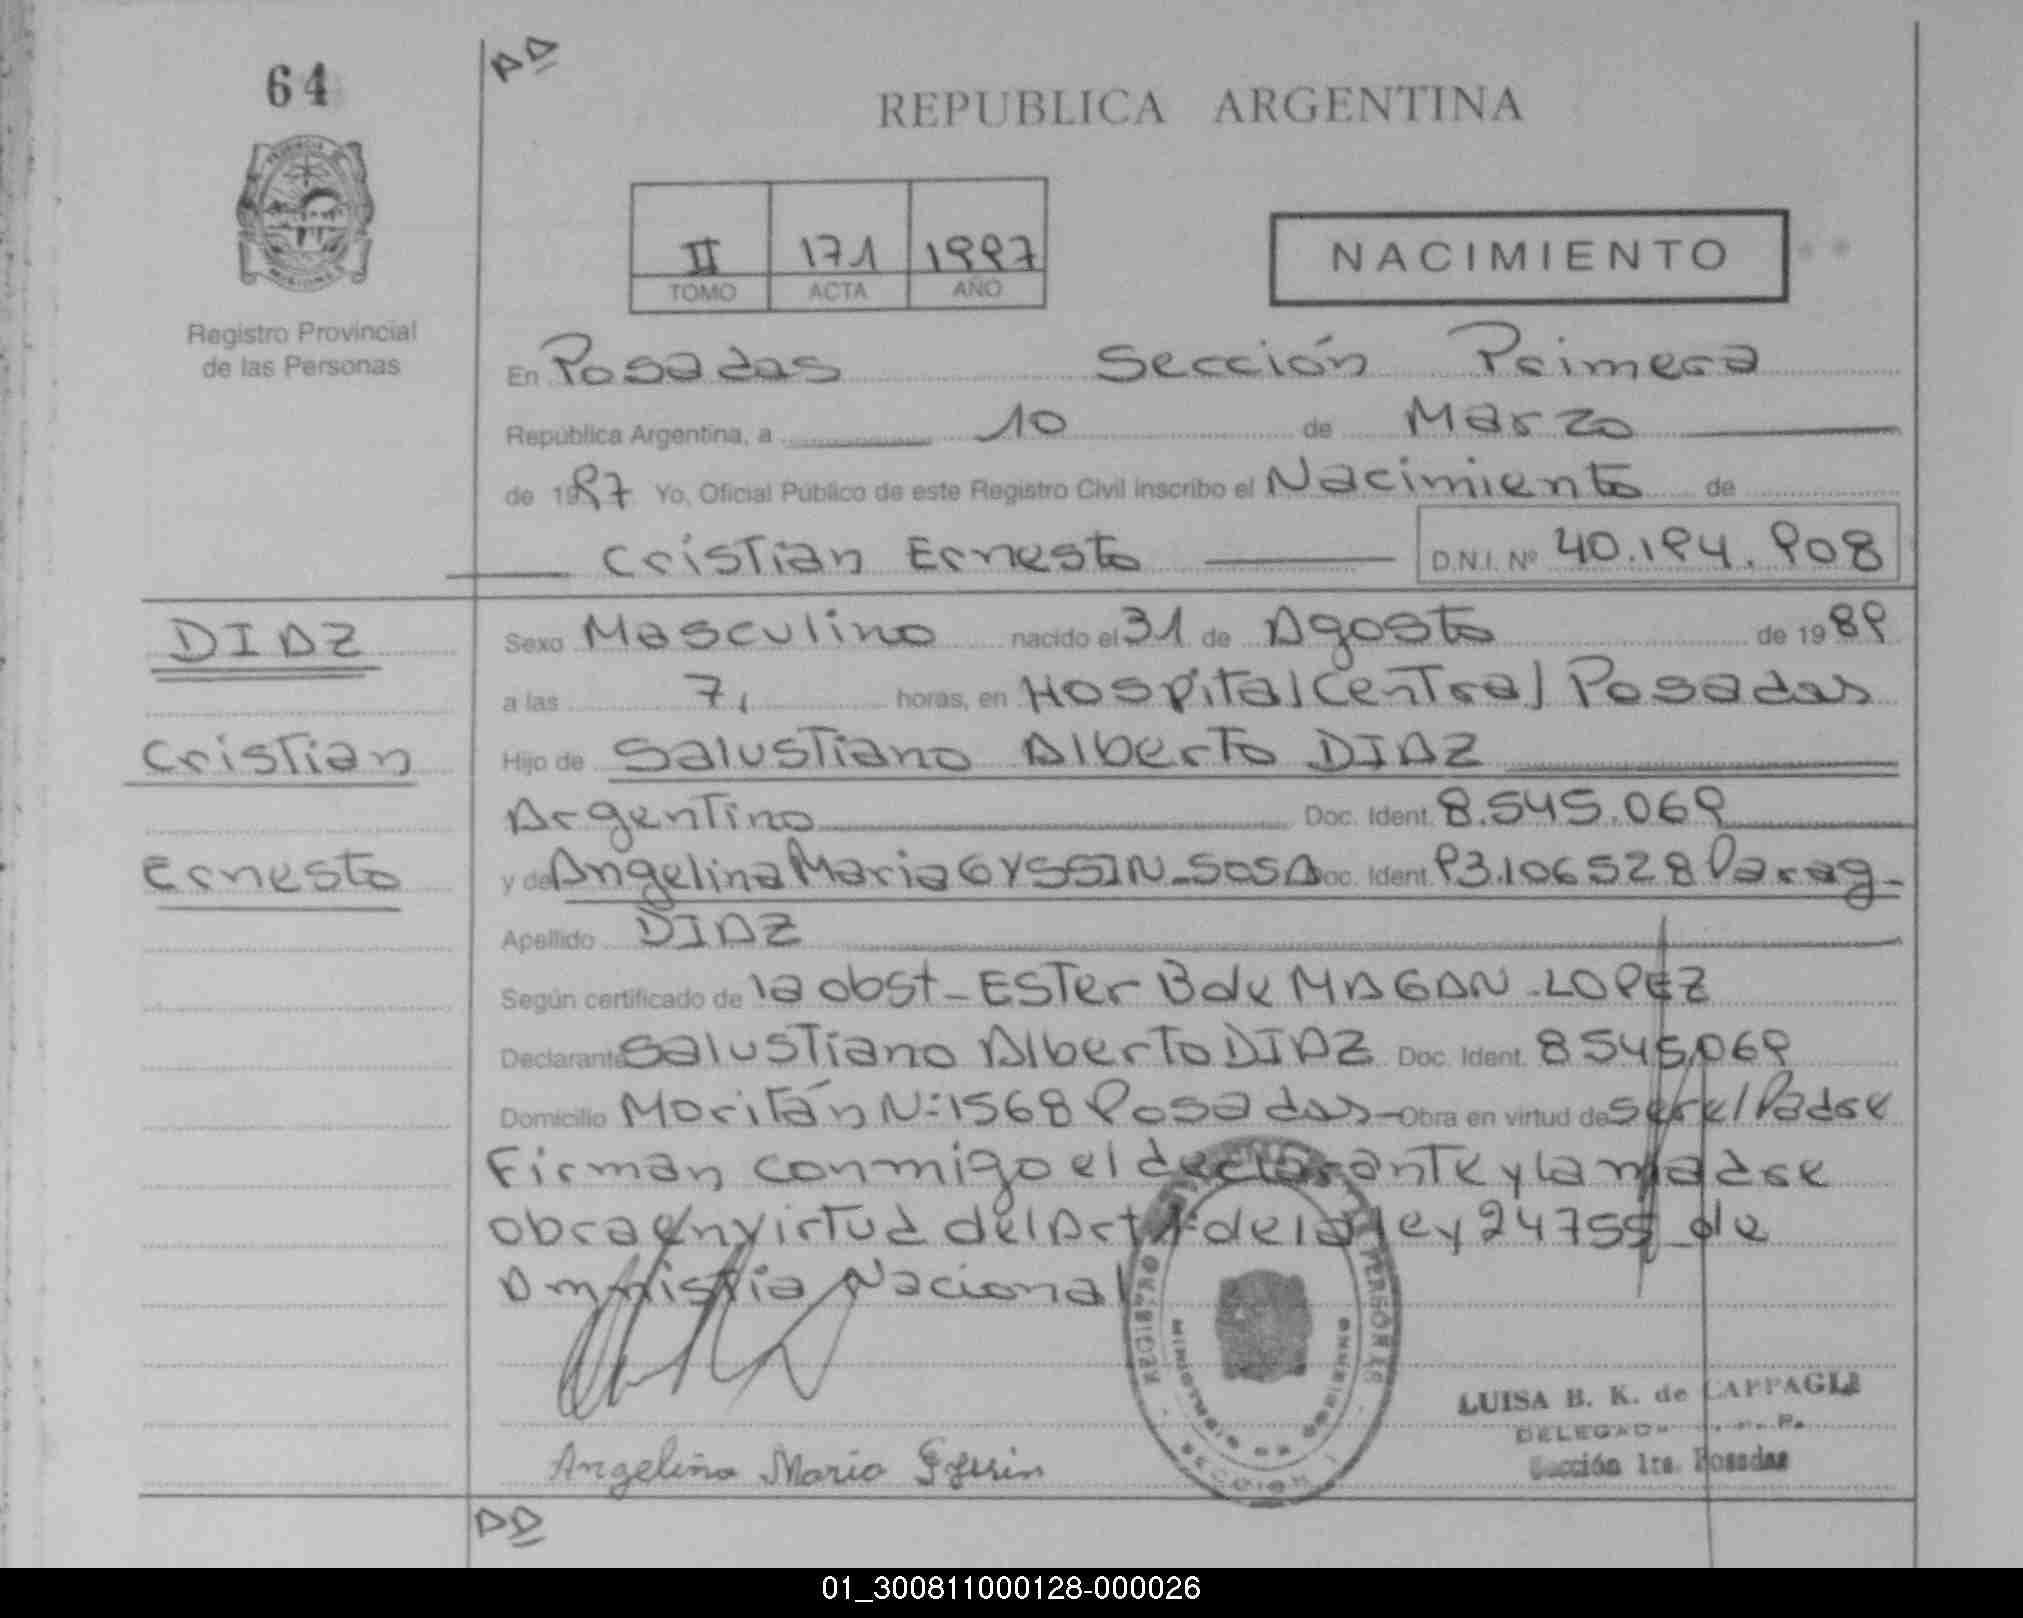 64
DD
REPUBLICA ARGENTINA
II 171 1997
TOMO ACTA AÑO
NACIMIENTO
Registro Provincial
de las Personas
En Posadas Sección Primera
República Argentina, a 10 de Marzo
de 1997 Yo, Oficial Público de este Registro Civil inscribo el Nacimiento de
Cristian Ernesto D.N.I. Nº 40.194.908
DIAZ
Cristian
Ernesto
Sexo Masculino nacido el 31 de Agosto de 1989
a las 7, horas, en Hospital Central Posadas
Hijo de Salustiano Alberto DIAZ
Argentino Doc. Ident. 8.545.069
y de Angelina Maria GYSSIN-SOSA Doc. Ident. 93.106528 Parag-
Apellido DIAZ
Según certificado de la obst-Ester B de MAGAN-LOPEZ
Declarante Salustiano Alberto DIAZ Doc. Ident. 8545.069
Domicilio Moritán N:1568 Posadas- Obra en virtud de ser el Padre
Firman conmigo el declarante y la madre
obra en virtud del Art 1: de la ley 24755 de
Amnistia Nacional
REGISTRO PERSONAS
MISIONES
SECCION 1
LUISA B. K. de CAPPAGLI
Sección 1ra. Posadas
Angelina Maria Gyssin
DD
01_300811000128-000026